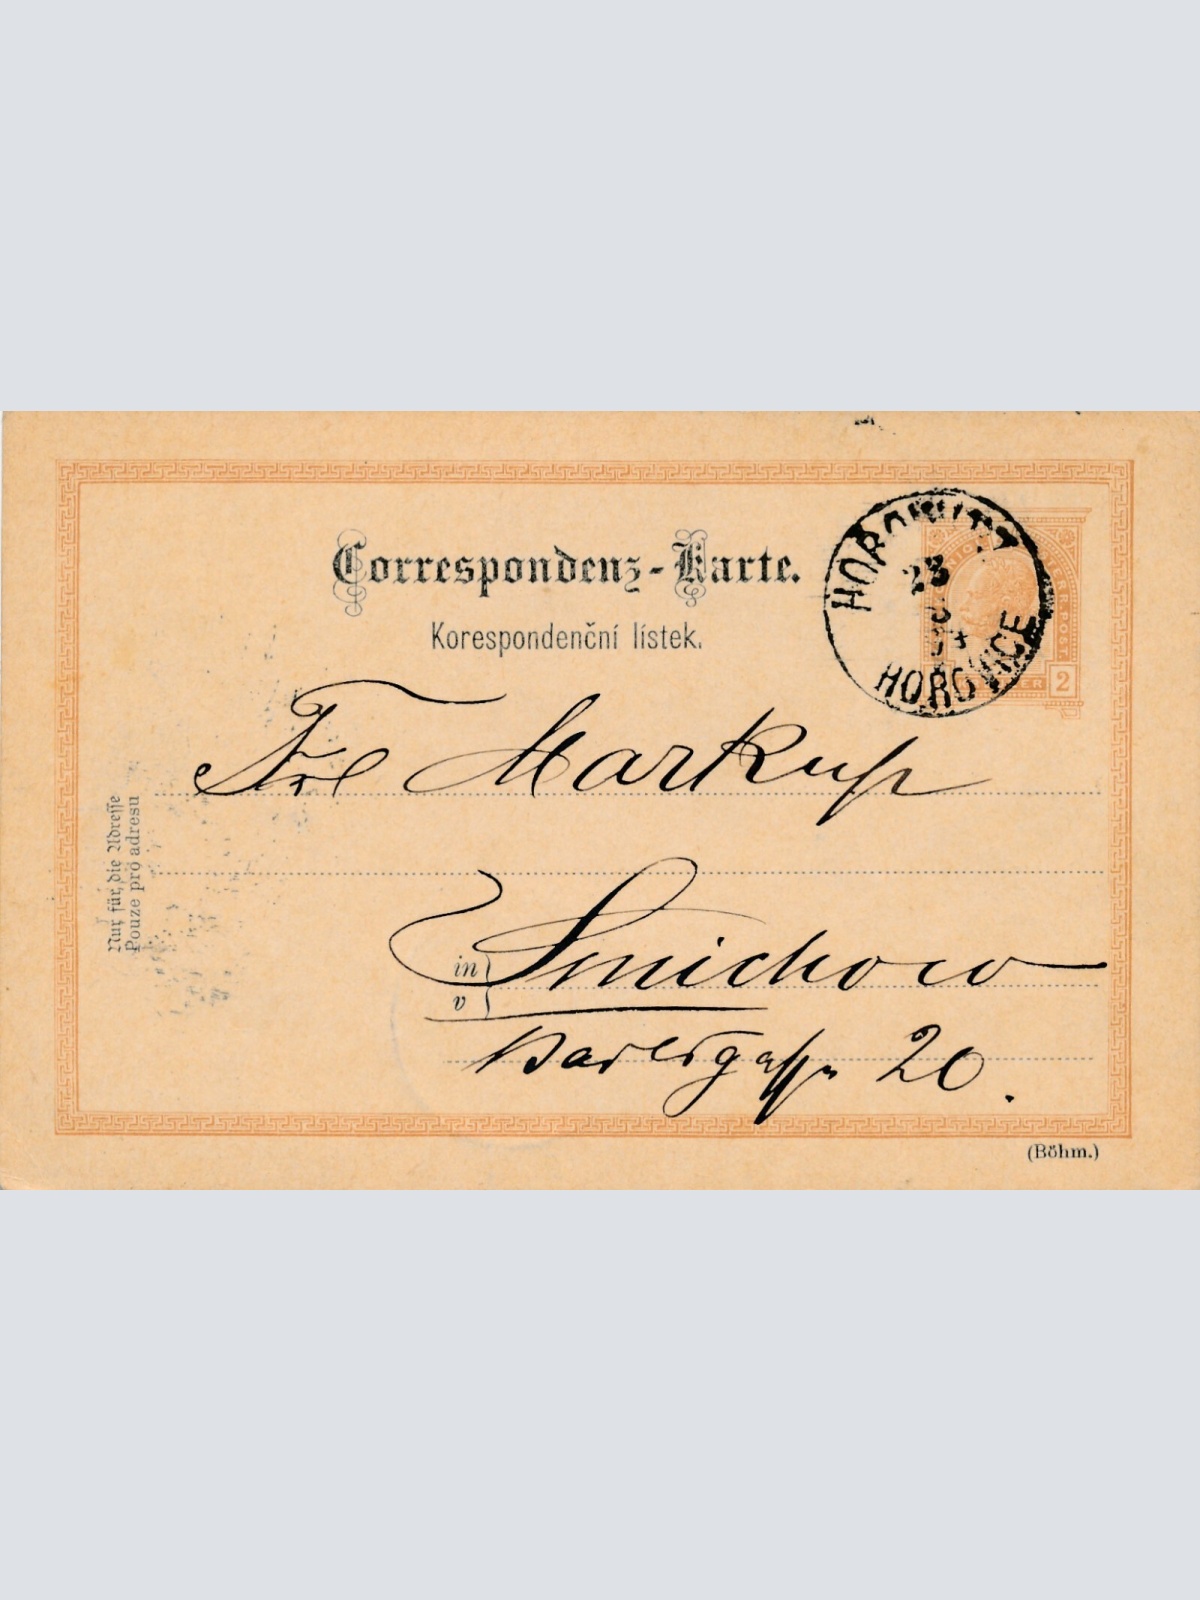 Correspondenz-Karte.
Korespondenční lístek.
HOROWITZ
23
HOROVICE
2
Frl Markup
in
v
Smichow
20.
Nur für die Adresse
Pouze pro adresu
(Böhm.)